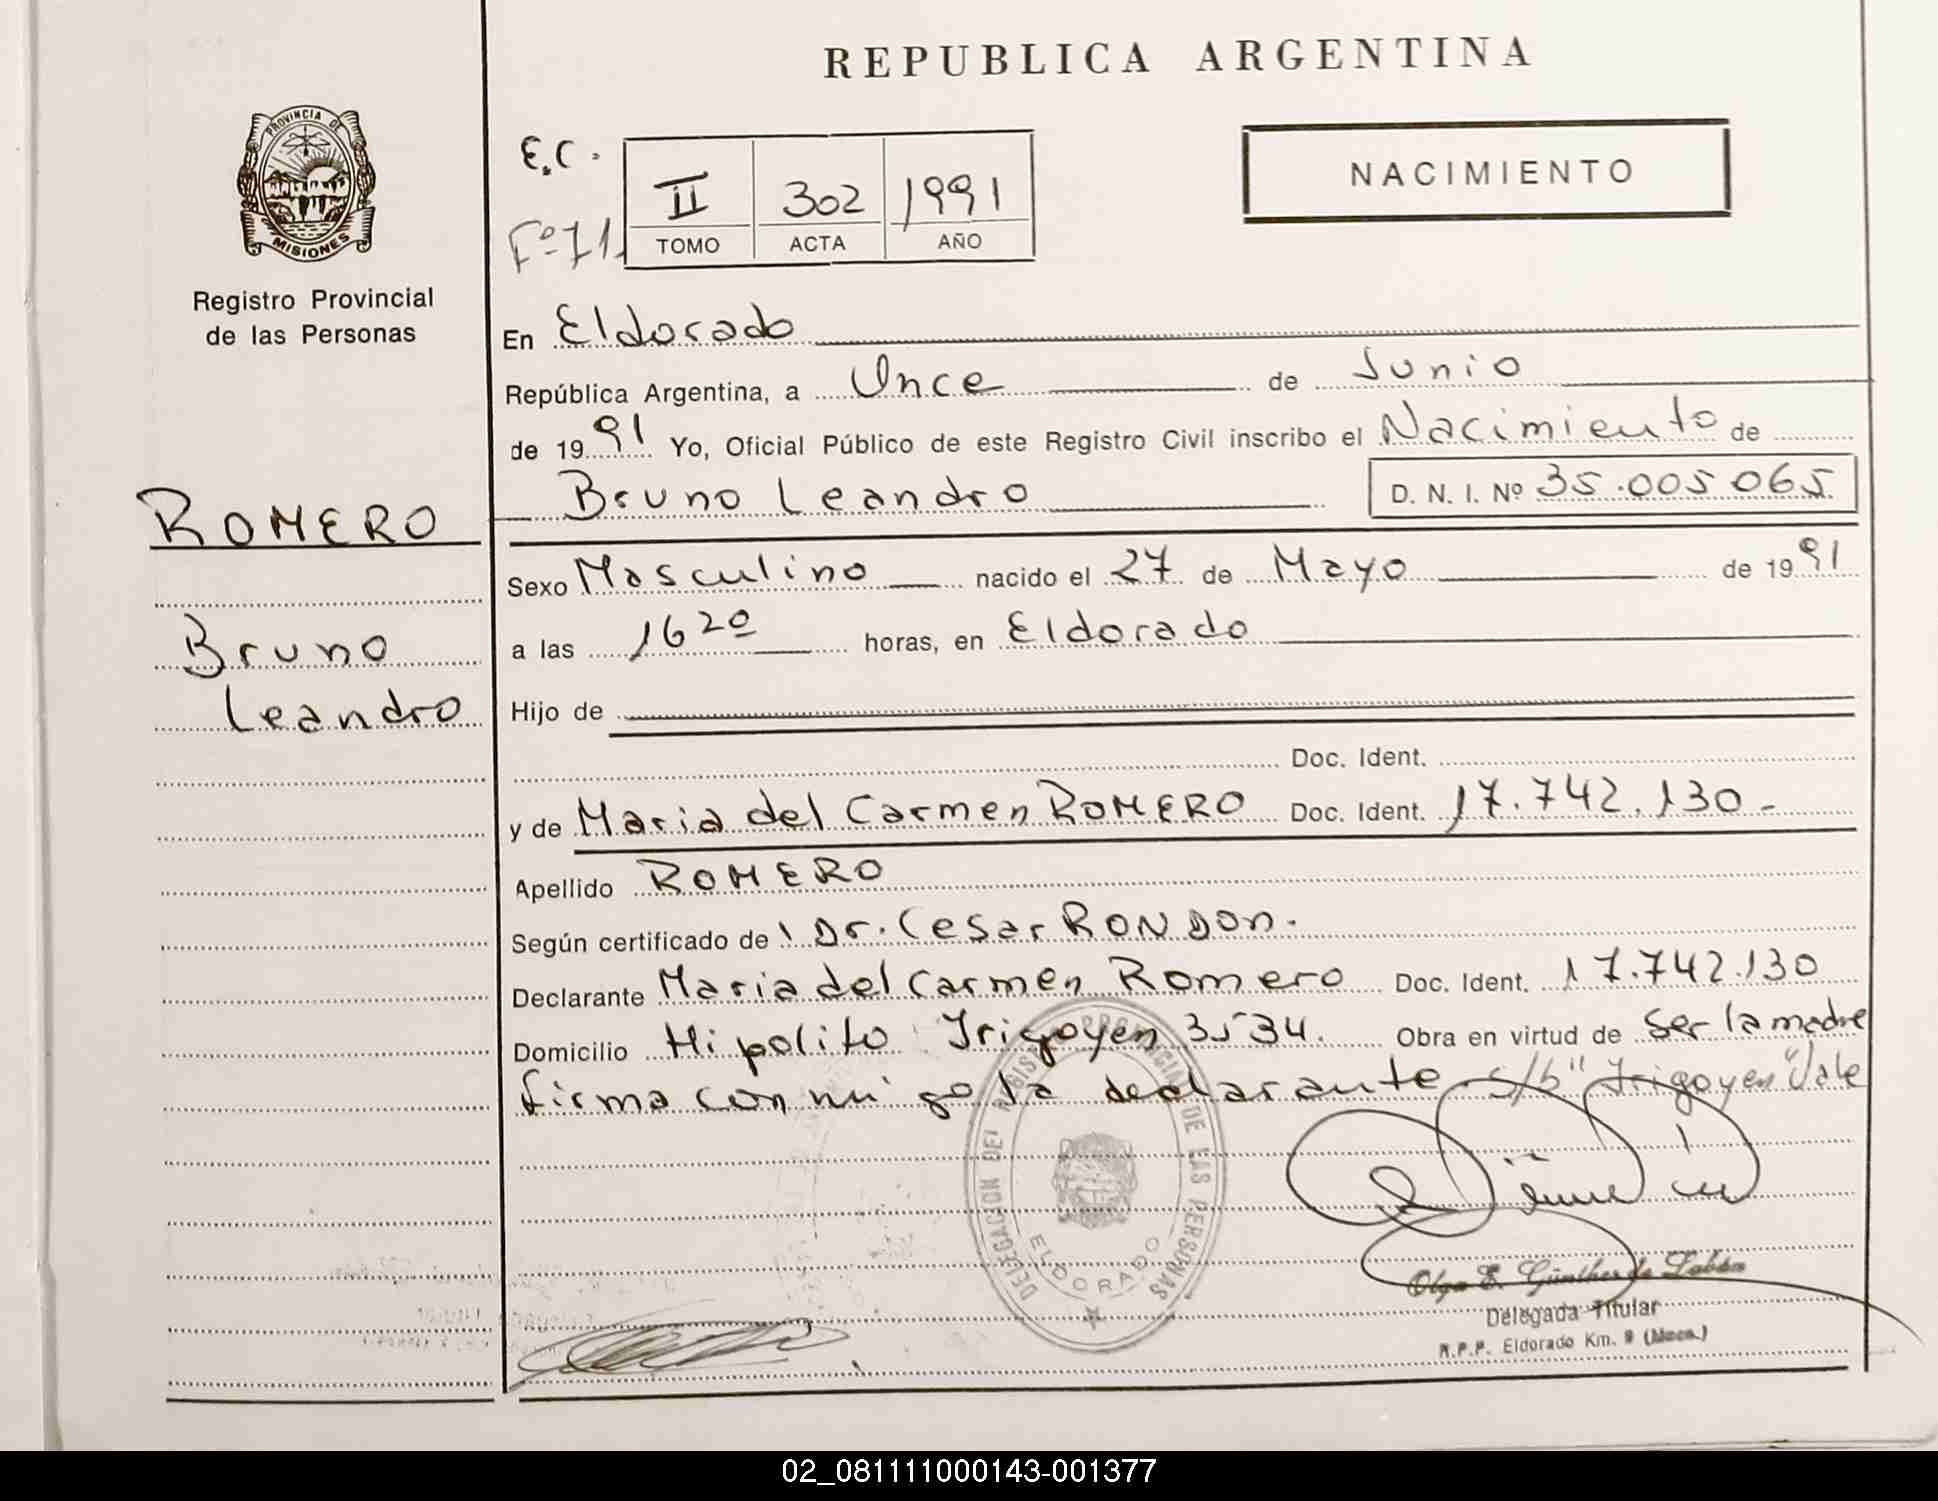 REPUBLICA ARGENTINA
PROVINCIA DE
MISIONES
Registro Provincial
de las Personas
E.C.
Fº 71
II 302 1991
TOMO ACTA AÑO
NACIMIENTO
En Eldorado
República Argentina, a Once de Junio
de 1991 Yo, Oficial Público de este Registro Civil inscribo el Nacimiento de
Bruno Leandro D. N. I. Nº 35.005.065
ROMERO
Bruno
Leandro
Sexo Masculino nacido el 27 de Mayo de 1991
a las 1620 horas, en Eldorado
Hijo de
Doc. Ident.
y de Maria del Carmen ROMERO Doc. Ident. 17.742.130-
Apellido ROMERO
Según certificado de Dr. Cesar RONDON.
Declarante Maria del Carmen Romero Doc. Ident. 17.742.130
Domicilio Hipolito Irigoyen 3534. Obra en virtud de ser la madre
firma conmigo la declarante. s/b "Irigoyen" Vale
DELEGACION DEL REGISTRO PROVINCIAL DE LAS PERSONAS
ELDORADO
Olga E. Günther de Labán
Delegada Titular
R.P.P. Eldorado Km. 9 (Mnes.)
02_081111000143-001377